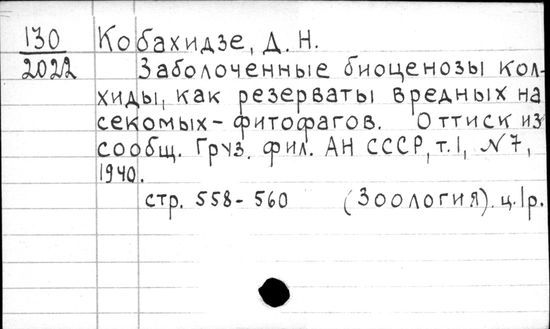 130 Кобахидзе, Д. Н.
2022 Заболоченные биоценозы Кол-
хиды, как резерваты вредных на
секомых - фитофагов. Оттиск из
сообщ. Груз. фил. АН СССР, т.1, №7,
1940.
стр. 558-560 (Зоология). ц.1р.